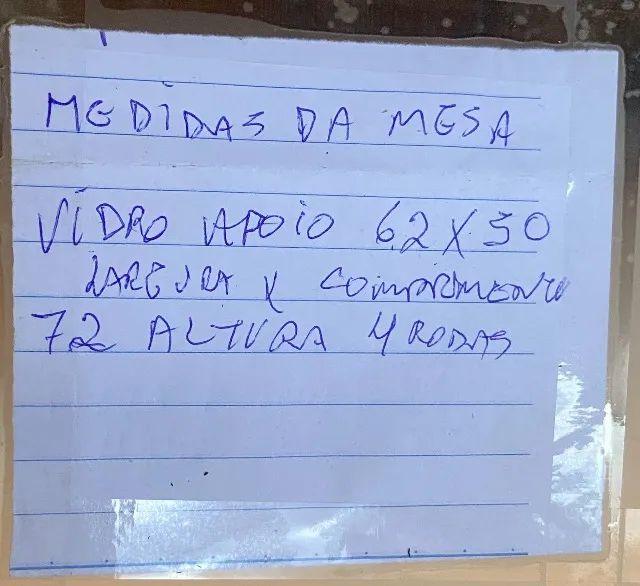 MEDIDAS DA MESA
VIDRO APOIO 62 X 50
LARGURA X COMPRIMENTO
72 ALTURA 4 RODAS